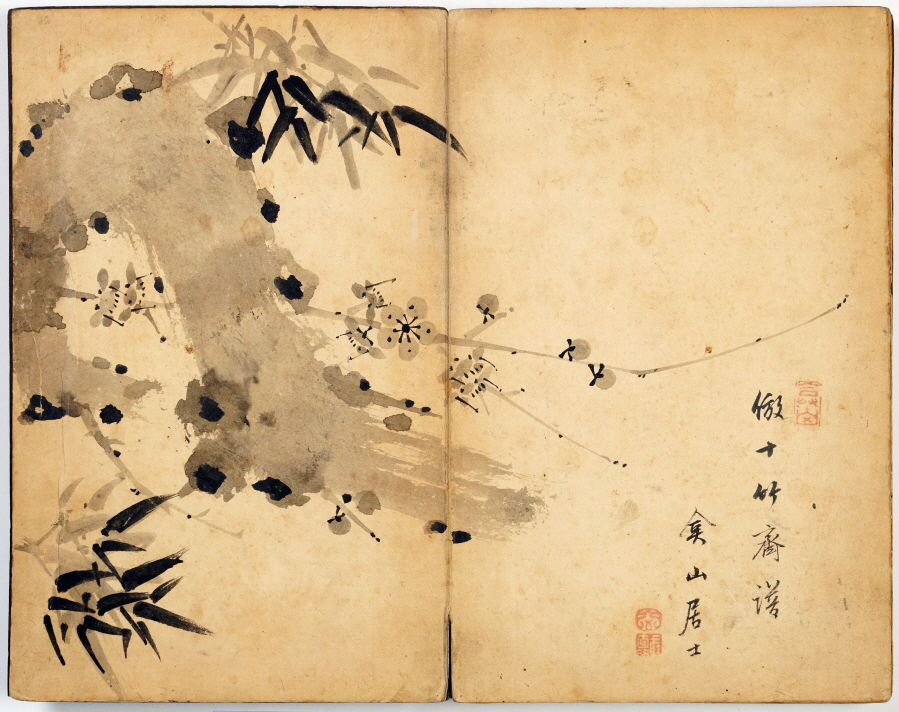 倣十竹齋譜
山居士